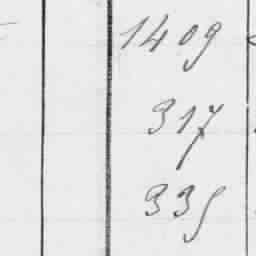 1409
317
335